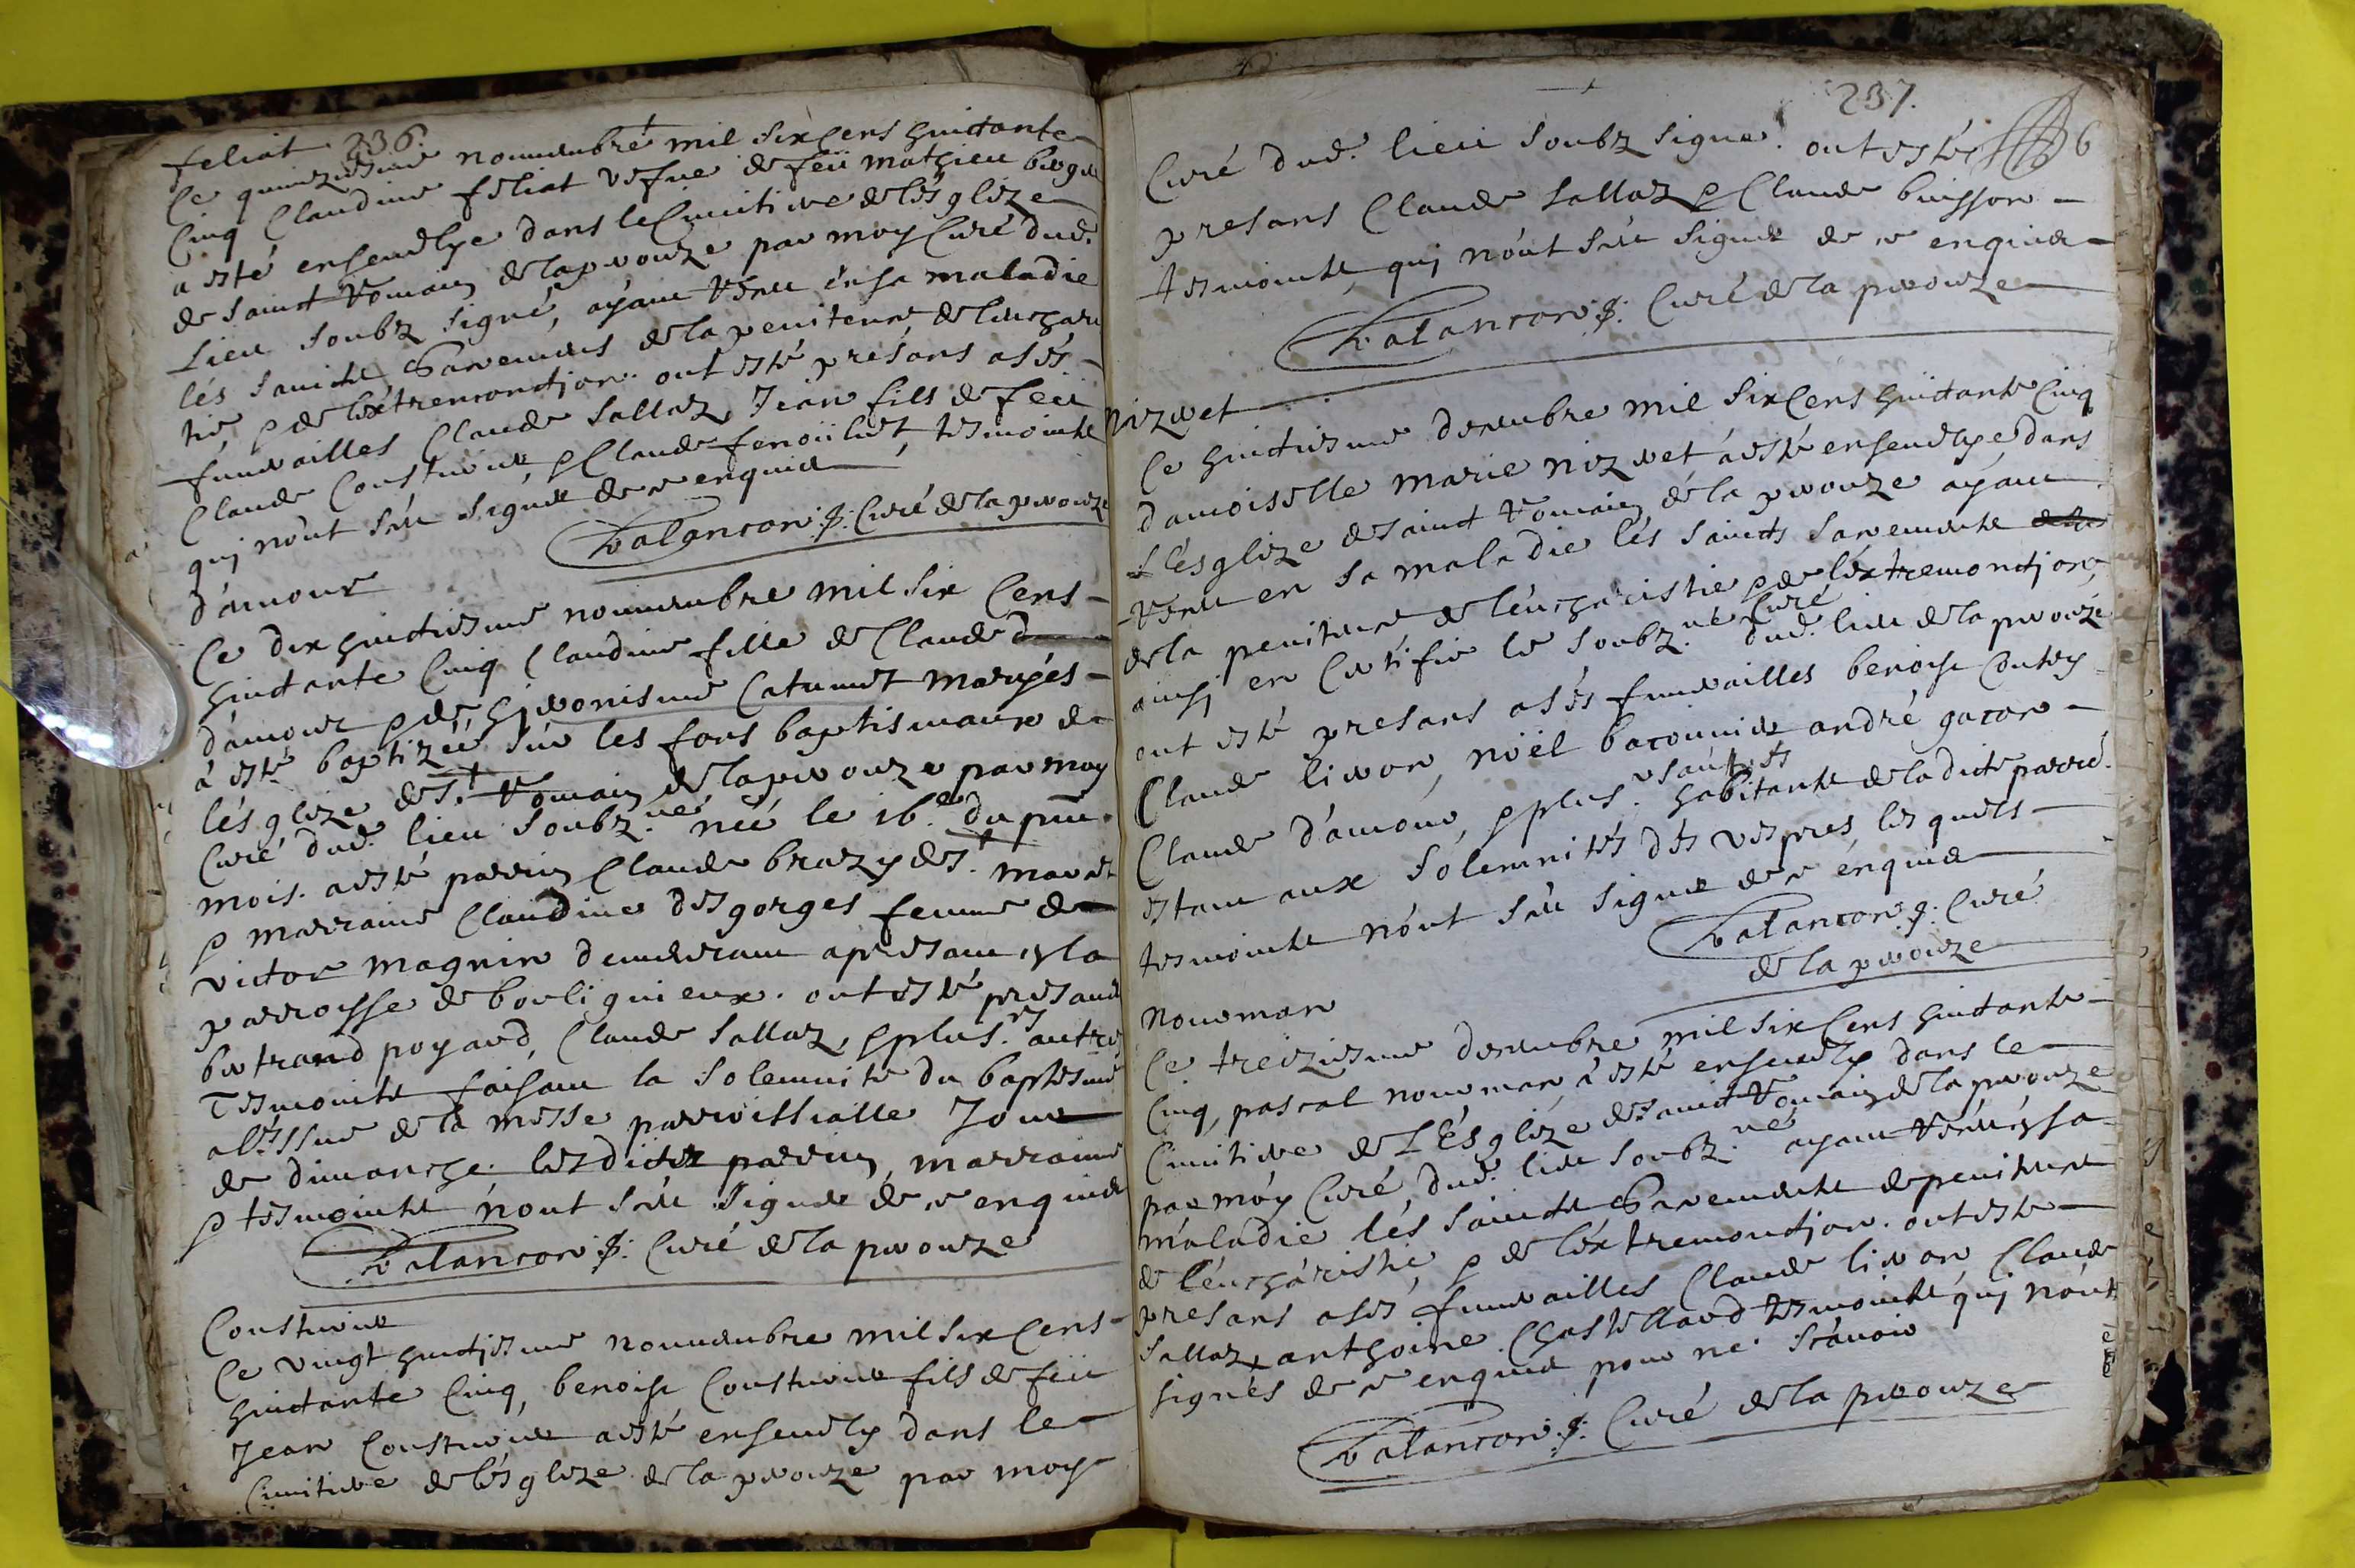 236.
feliat
Ce quinziesme nouuembre mil six Cens huictante
Cinq Claudine feliat vefue de feü mathieu
a esté enseuelye dans le Cimitiere de lésglize
de sainct Romain de la peyrouze par moy Curé dud.
Lieu soubz signé, ayant receu én sa maladie
lés saincts Sacremens de la penitence, de leucharis
tie, & de léxtremonction. ont esté présans a sés
funerailles Claude sallaz, Jean fils de feü
Claude Cousturier, & Claude fenoüillet, tesmoints
qui n'ont sceu signer de ce enquis
Balancon p. Curé de la peyrouze
d'amour
Ce dix huictiesme nouuembre mil six Cens
huictante Cinq Claudine fille de Claude
d'amour & de hieronisme Catumet mariés
à esté baptizéé sur les fons baptismaux de
lésglize de St. Romain de la peyrouze par moy
Curé dud. lieu soubz.né née le 16.e du pnt.
mois. a esté parrin Claude brazy de St. marcel
& marraine Claudine desgorges femme de
victor magnin demeurant apresant en la
parroisse de bouligneux. ont esté présants
bertrand poyard, Claude sallaz, & plus.rs autres
Tesmoints faisant la solemnité du baptesme
a l'issue de la messe parroissialle Jour
de dimanche. lesdicts parrin, marraine
& tesmoints n'ont sceu signer de ce enquis
Balancon p. Curé de la peyrouze
Cousturier
Ce vingt huictiesme nouuembre mil six Cens
huictante Cinq, benoist Cousturier fils de feü
Jean Cousturier a esté enseuely dans le
Cimitiere de lésglize de la peyrouze par moy
237.
6
Curé dud. lieu soubz signé. ont esté
presans Claude sallaz & Claude buisson
tesmoints qui n'ont sceu signer de ce enquis
Balancon p. Curé de la peyrouze
nizeret
Ce huictiesme decembre mil six Cens huictante Cinq
damoiselle marie nizeret à esté enseuelye dans
Lésglize de sainct Romain de la peyrouze ayant
receu en sa maladie lés saincts sacrements
de la penitence de léucharistie & de léxtremonction,
ainsi en Certifie le soubz.né Curé dud. lieu de la peyrouze
ont esté presans a sés funerailles benoist
Claude liuron, noël baconnier andré gacon
Claude d'amour, & plus.rs aultres habitants de ladicte parro.
estant aux solemnités dés vespres, les quels
tesmoints n'ont sceu signer de ce énquis
Balancon p. Curé
de la peyrouze
nouueman
Ce treiziesme decembre mil six Cens huictante
Cinq, pascal nouueman à esté enseuely dans le
Cimitiere de Lésglize de sainct Romain de la peyrouze
par moy Curé, dud. lieu soubz.né ayant receu én sa
maladie lés saincts Sacrements de penitence
de léucharistie & de léxtremonction. ont esté
presans a sés funerailles Claude liuron Claude
sallaz, anthoine Chastellard tesmoints qui n'ont
signés de ce enquis pour ne sçauoir
Balancon p. Curé de la peyrouze